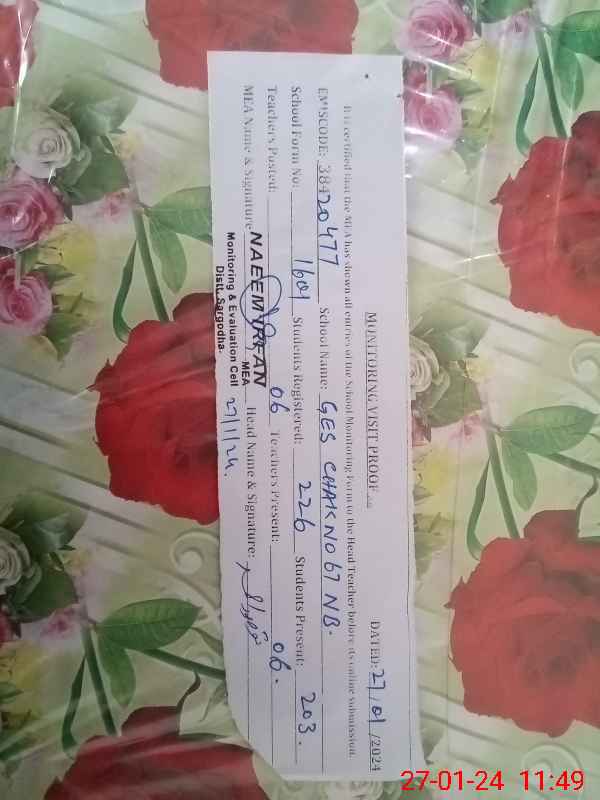 MONITORING VISIT PROOF
DATED: 27/01/2024
It is certified that the MEA has shown all entries of the School Monitoring Form to the Head Teacher before its online submission.
EMISCODE: 38420477 School Name: GES CHAK NO 67 NB.
School Form No: 1601 Students Registered: 226 Students Present: 203.
Teachers Posted: 06 Teachers Present: 06.
MEA Name & Signature NAEEM IRFAN Head Name & Signature:
MEA
Monitoring & Evaluation Cell 27/1/24.
Distt. Sargodha.
27-01-24 11:49